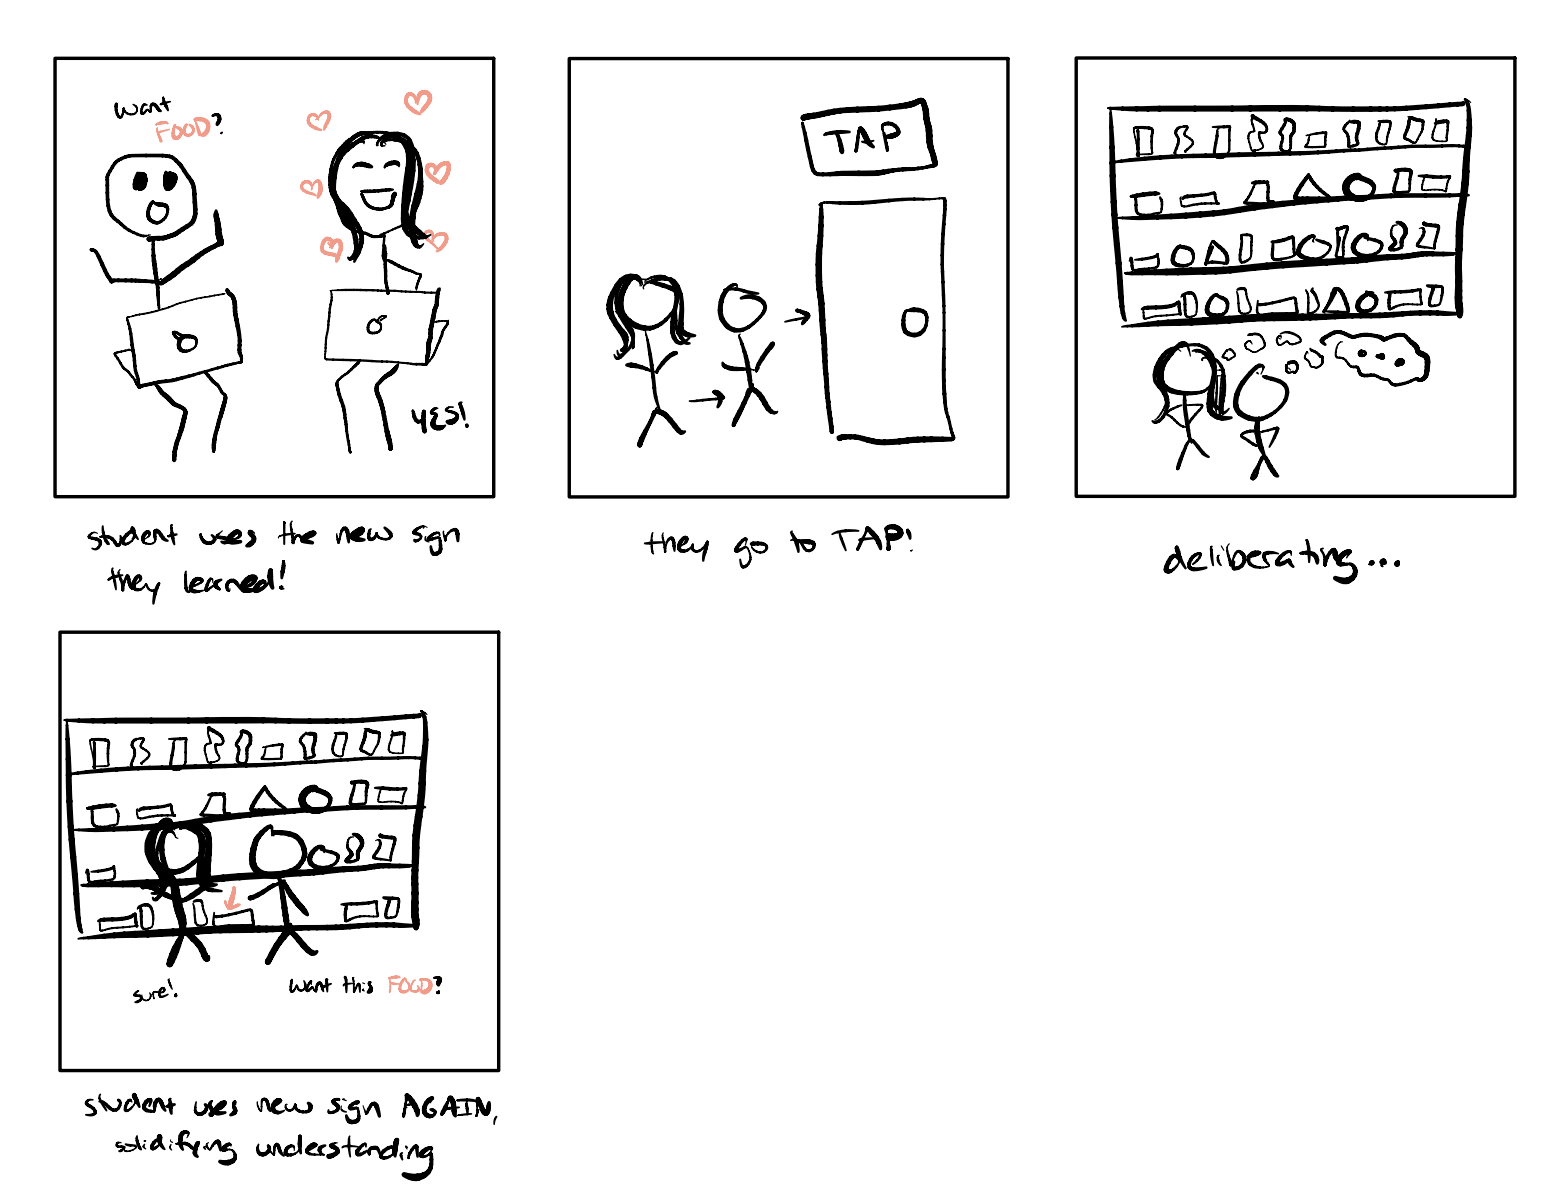 want
FOOD?
YES!
student uses the new sign
they learned!
TAP
they go to TAP!
deliberating...
sure!
want this FOOD?
student uses new sign AGAIN,
solidifying understanding